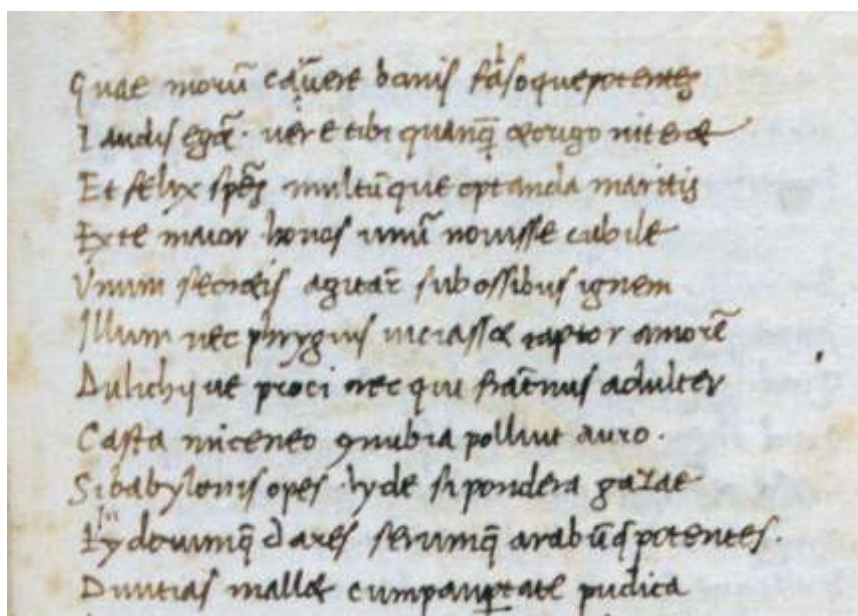 Quae morū caruere bonis falsoque potentes
Laudis egēt. vere tibi quanq̄ et origo niteret
Et felix speēs multūque optanda maritis
Ex te maior honos unū novisse cubile
Vnum secretis agitar̄ sub ossibus ignem
Illum nec phrygius viciasset raptor amorē
Dulichij ve proci nec qui fratnus adulter
Casta miceneo ꝯnubia polluit auro.
Si babylonis opes. lyde si pondera gazae
Lydorumq̄ dares serumq̄ arabūq̄ potentes.
Divitias mallet cum paupertate pudica